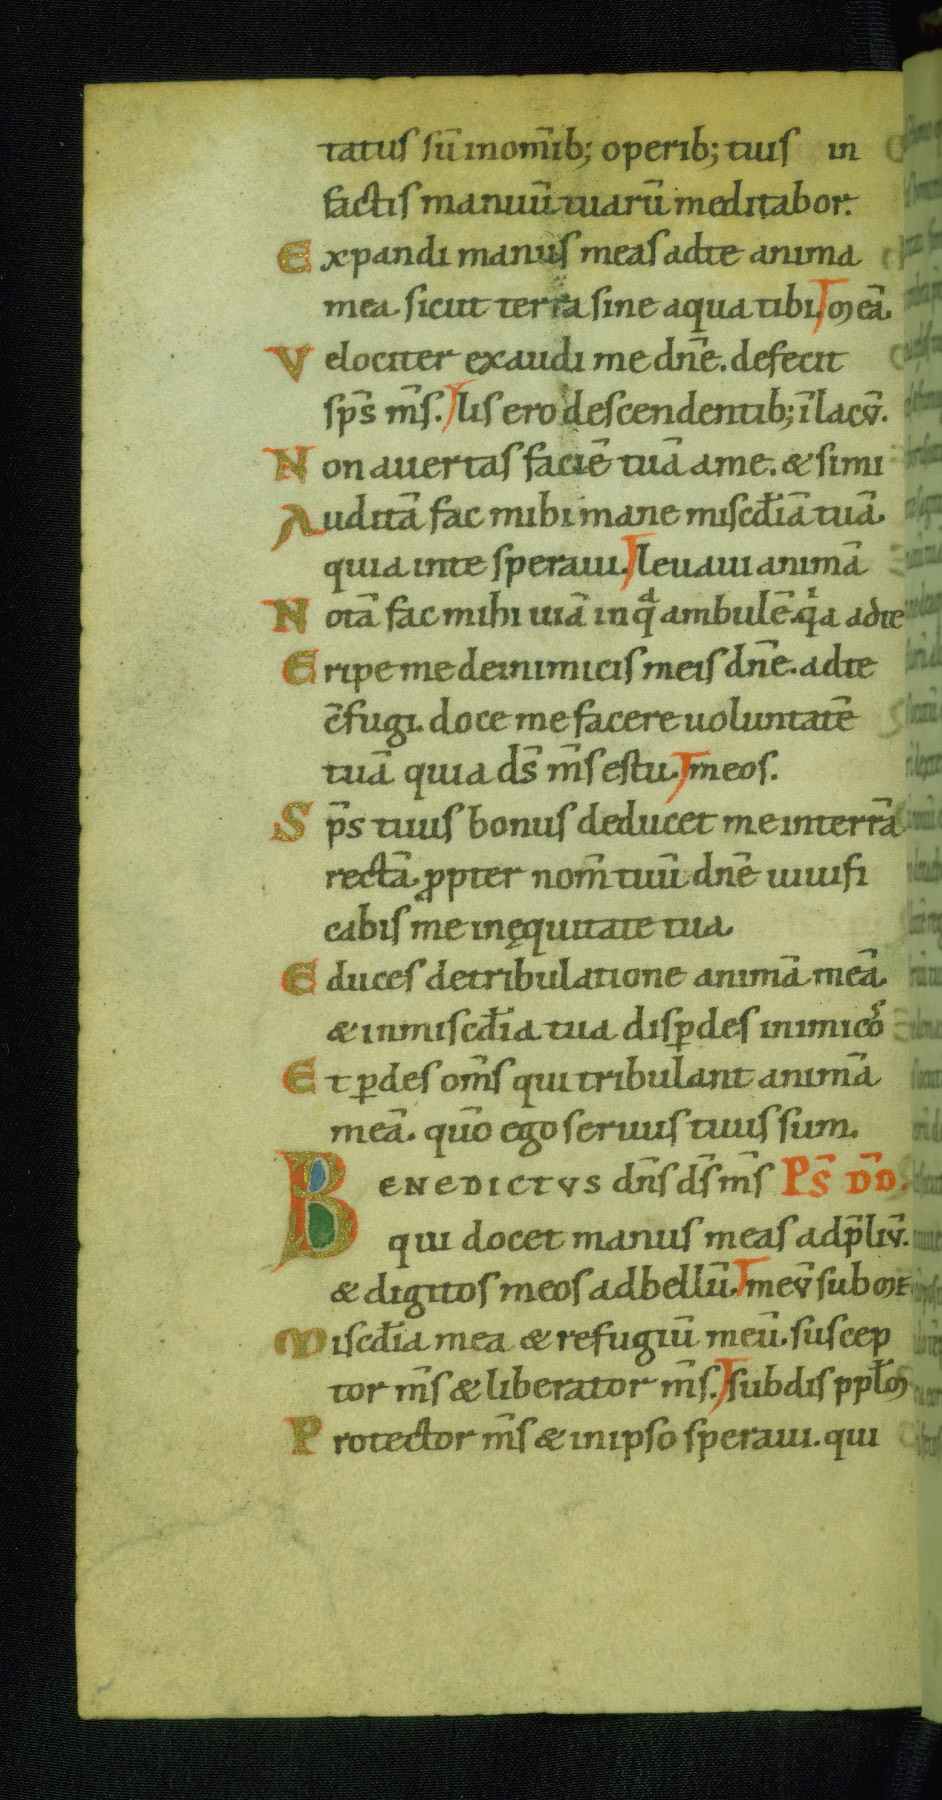 tatus sū in om̄ib; operib; tuis in
factis manuū tuarū meditabor.
Expandi manus meas ad te anima
mea. sicut terra sine aqua tibi. meā.
Velociter exaudi me dn̄e. defecit
sp̄s m̄s. lis ero descendentib; ī lacū.
Non auertas faciē tuā a me. & simi
Auditā fac mihi mane misc̄diā tuā.
quia in te speraui. leuaui animā
Notā fac mihi uiā in qᵃ ambulē. qⁱa ad te
Eripe me de inimicis meis dn̄e. ad te
c̄fugi. doce me facere uoluntatē
tuā quia ds̄ m̄s es tu. meos.
Sp̄s tuus bonus deducet me in terrā
rectā. ꝓpter nom̄ tuū dn̄e uiuifi
cabis me in ęquitate tua.
Educes de tribulatione animā meā.
& in misc̄dia tua disꝑdes inimicos̄
Et ꝑdes om̄s qui tribulant animā
meā. qūo ego seruus tuus sum.
BENEDICTVS dn̄s ds̄ m̄s PS̄ DD̄.
qui docet manus meas ad p̄liū.
& digitos meos ad bellū. meū sub me
Misc̄dia mea & refugiū meū. suscep
tor m̄s & liberator m̄s. subdis ppl̄m
Protector m̄s & in ipso speraui. qui